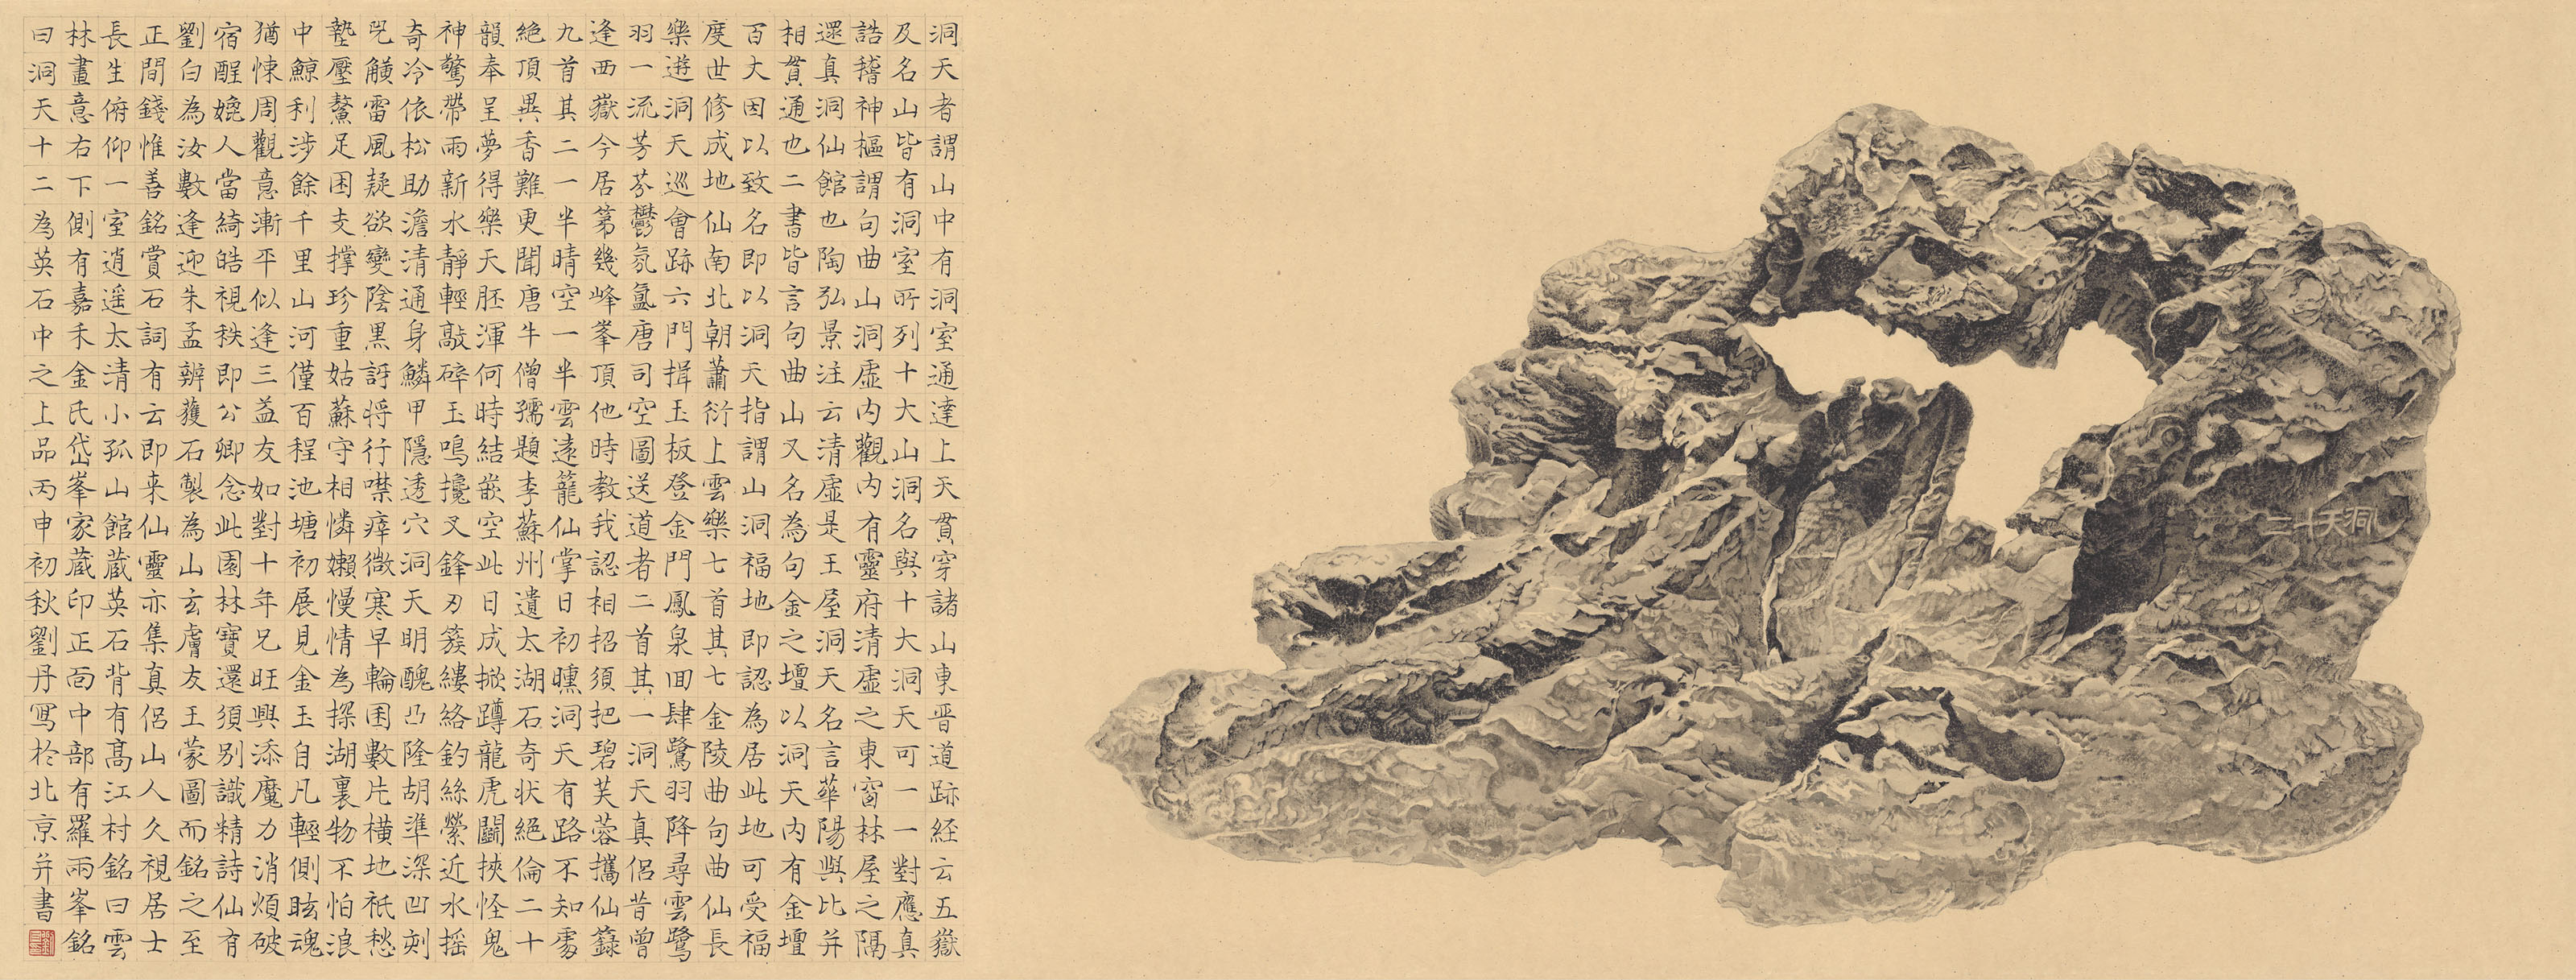 洞天者謂山中有洞室通達上天貫穿諸山東晋道跡経云五嶽
及名山皆有洞室所列十大山洞名與十大洞天可一一對應真
誥稽神樞謂句曲山洞虛內觀內有靈府清虛之東窗林屋之隔
還真洞仙館也陶弘景注云清虛是王屋洞天名言華陽與比并
相貫通也二書皆言句曲山又名為句金之壇以洞天內有金壇
百丈因以致名即以洞天指謂山洞福地即認為居此地可受福
度世修成地仙南北朝蕭衍上雲樂七首其七金陵曲句曲仙長
樂遊洞天巡會跡六門揖玉板登金門鳳泉回肆鷺羽降尋雲鷺
羽一流芳芬鬱氛氳唐司空圖送道者二首其一洞天真侶昔曾
逢西嶽今居第幾峰峯頂他時教我認相招須把碧芙蓉攜仙籙
九首其二一半晴空一半雲遠籠仙掌日初曛洞天有路不知處
絕頂異香難更聞唐牛僧孺題李蘇州遺太湖石奇狀絕倫二十
韻奉呈夢得樂天胚渾何時結嵌空此日成掀蹲龍虎鬭挾怪鬼
神驚帶雨新水靜輕敲碎玉鳴攙叉鋒刃簇縷絡釣絲縈近水摇
奇冷依松助澹清通身鱗甲隱透穴洞天明醜凸隆胡準深凹刻
兕觵雷風疑欲變陰黑訝将行噤瘁微寒早輪囷數片横地祇愁
墊壓鰲足困支撐珍重姑蘇守相憐懶慢情為探湖裏物不怕浪
中鯨利涉餘千里山河僅百程池塘初展見金玉自凡輕側眩魂
猶悚周觀意漸平似逢三益友如對十年兄旺興添魔力消煩破
宿酲媲人當綺皓視秩即公卿念此園林寶還須別識精詩仙有
劉白為汝數逢迎朱孟辨獲石製為山玄膚友王蒙圖而銘之至
正間錢惟善銘賞石詞有云即来仙靈亦集真侶山人久視居士
長生俯仰一室逍遥太清小孤山館蔵英石背有髙江村銘曰雲
林畫意右下側有嘉禾金氏岱峯家蔵印正面中部有羅雨峯銘
曰洞天十二為英石中之上品丙申初秋劉丹寫於北亰并書
洞天十二